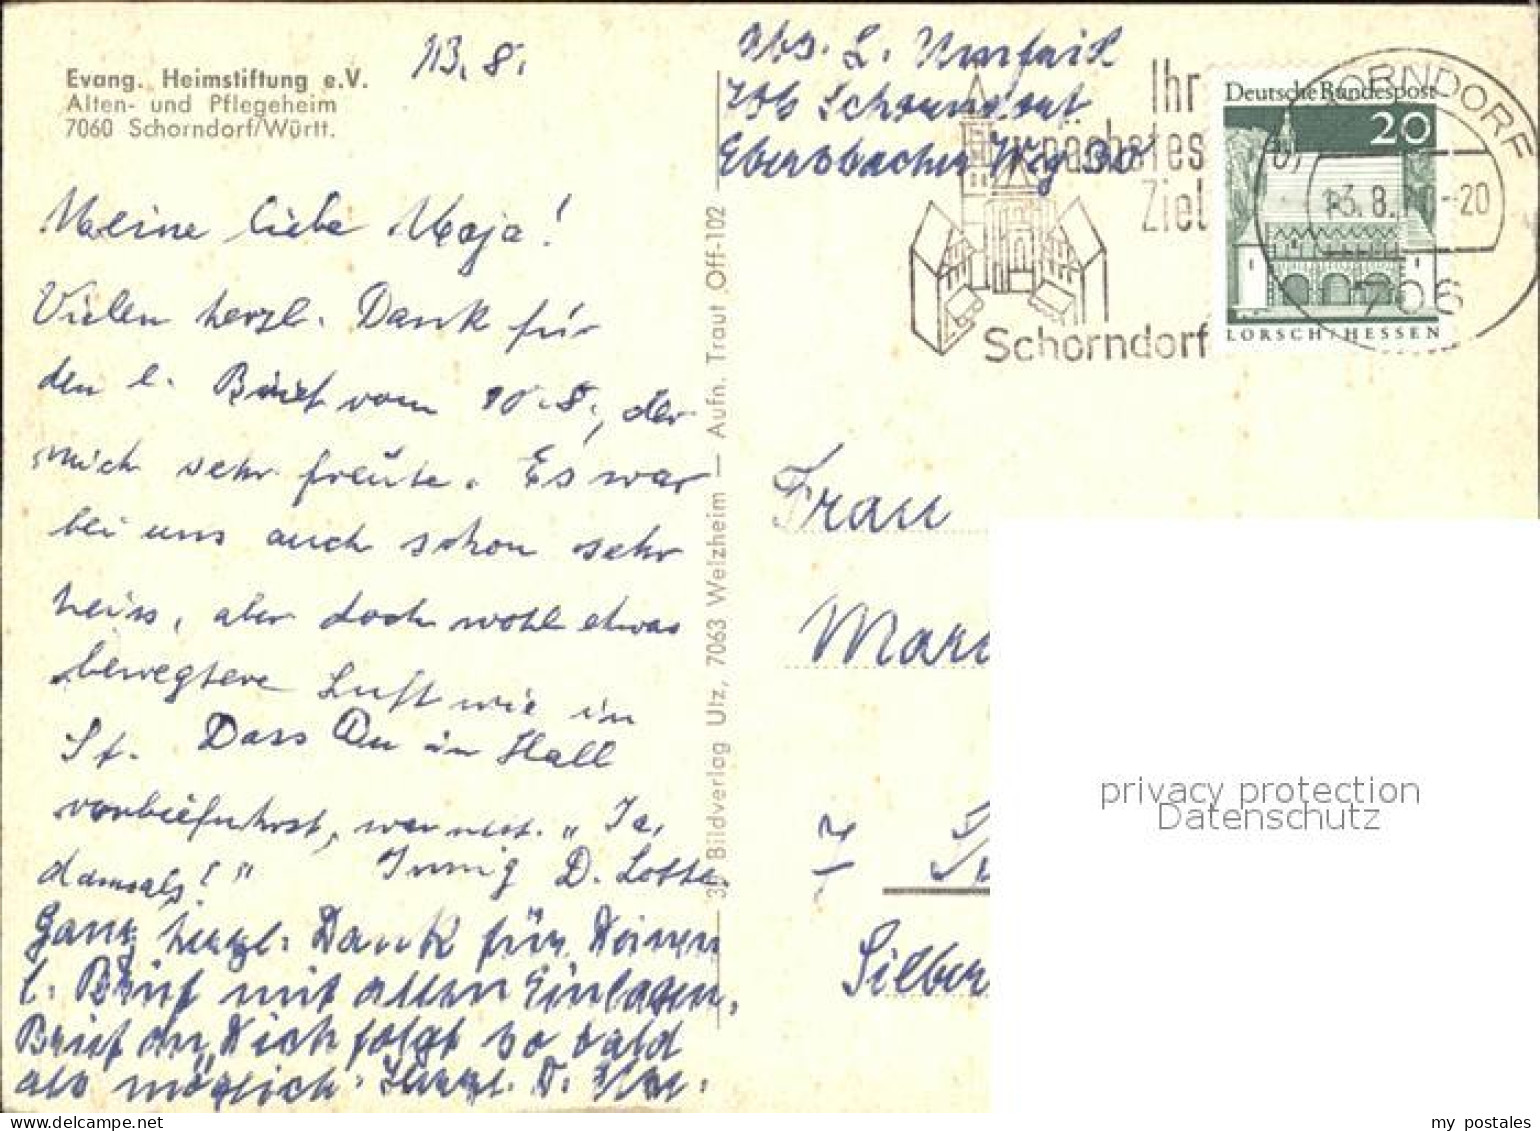 Evang. Heimstiftung e.V.
Alten- und Pflegeheim
7060 Schorndorf/Württ.
13. 8.
Meine liebe Maja!
Vielen herzl. Dank für
den l. Brief vom 10. 8., der
mich sehr freute. Es war
bei uns auch schon sehr
heiss, aber doch wohl etwas
bewegtere Luft wie in
St. Dass Du in Hall
vorbeifuhrst, war nett. „Ja,
damals!" Innig D. Lotte.
Ganz herzl. Dank für Deinen
l. Brief mit allen Einlagen.
Brief an Dich folgt so bald
als möglich. Herzl. D.
Bildverlag Utz, 7063 Welzheim — Aufn. Traut Off-102
Abs. L.
706 Schorndorf
Ebersbacher Weg 30
Ihr
nächstes
Ziel
Schorndorf
Deutsche Bundespost
20
LORSCH/HESSEN
SCHORNDORF
13. 8. -20
706
Frau
7
Silber
privacy protection
Datenschutz
my postales